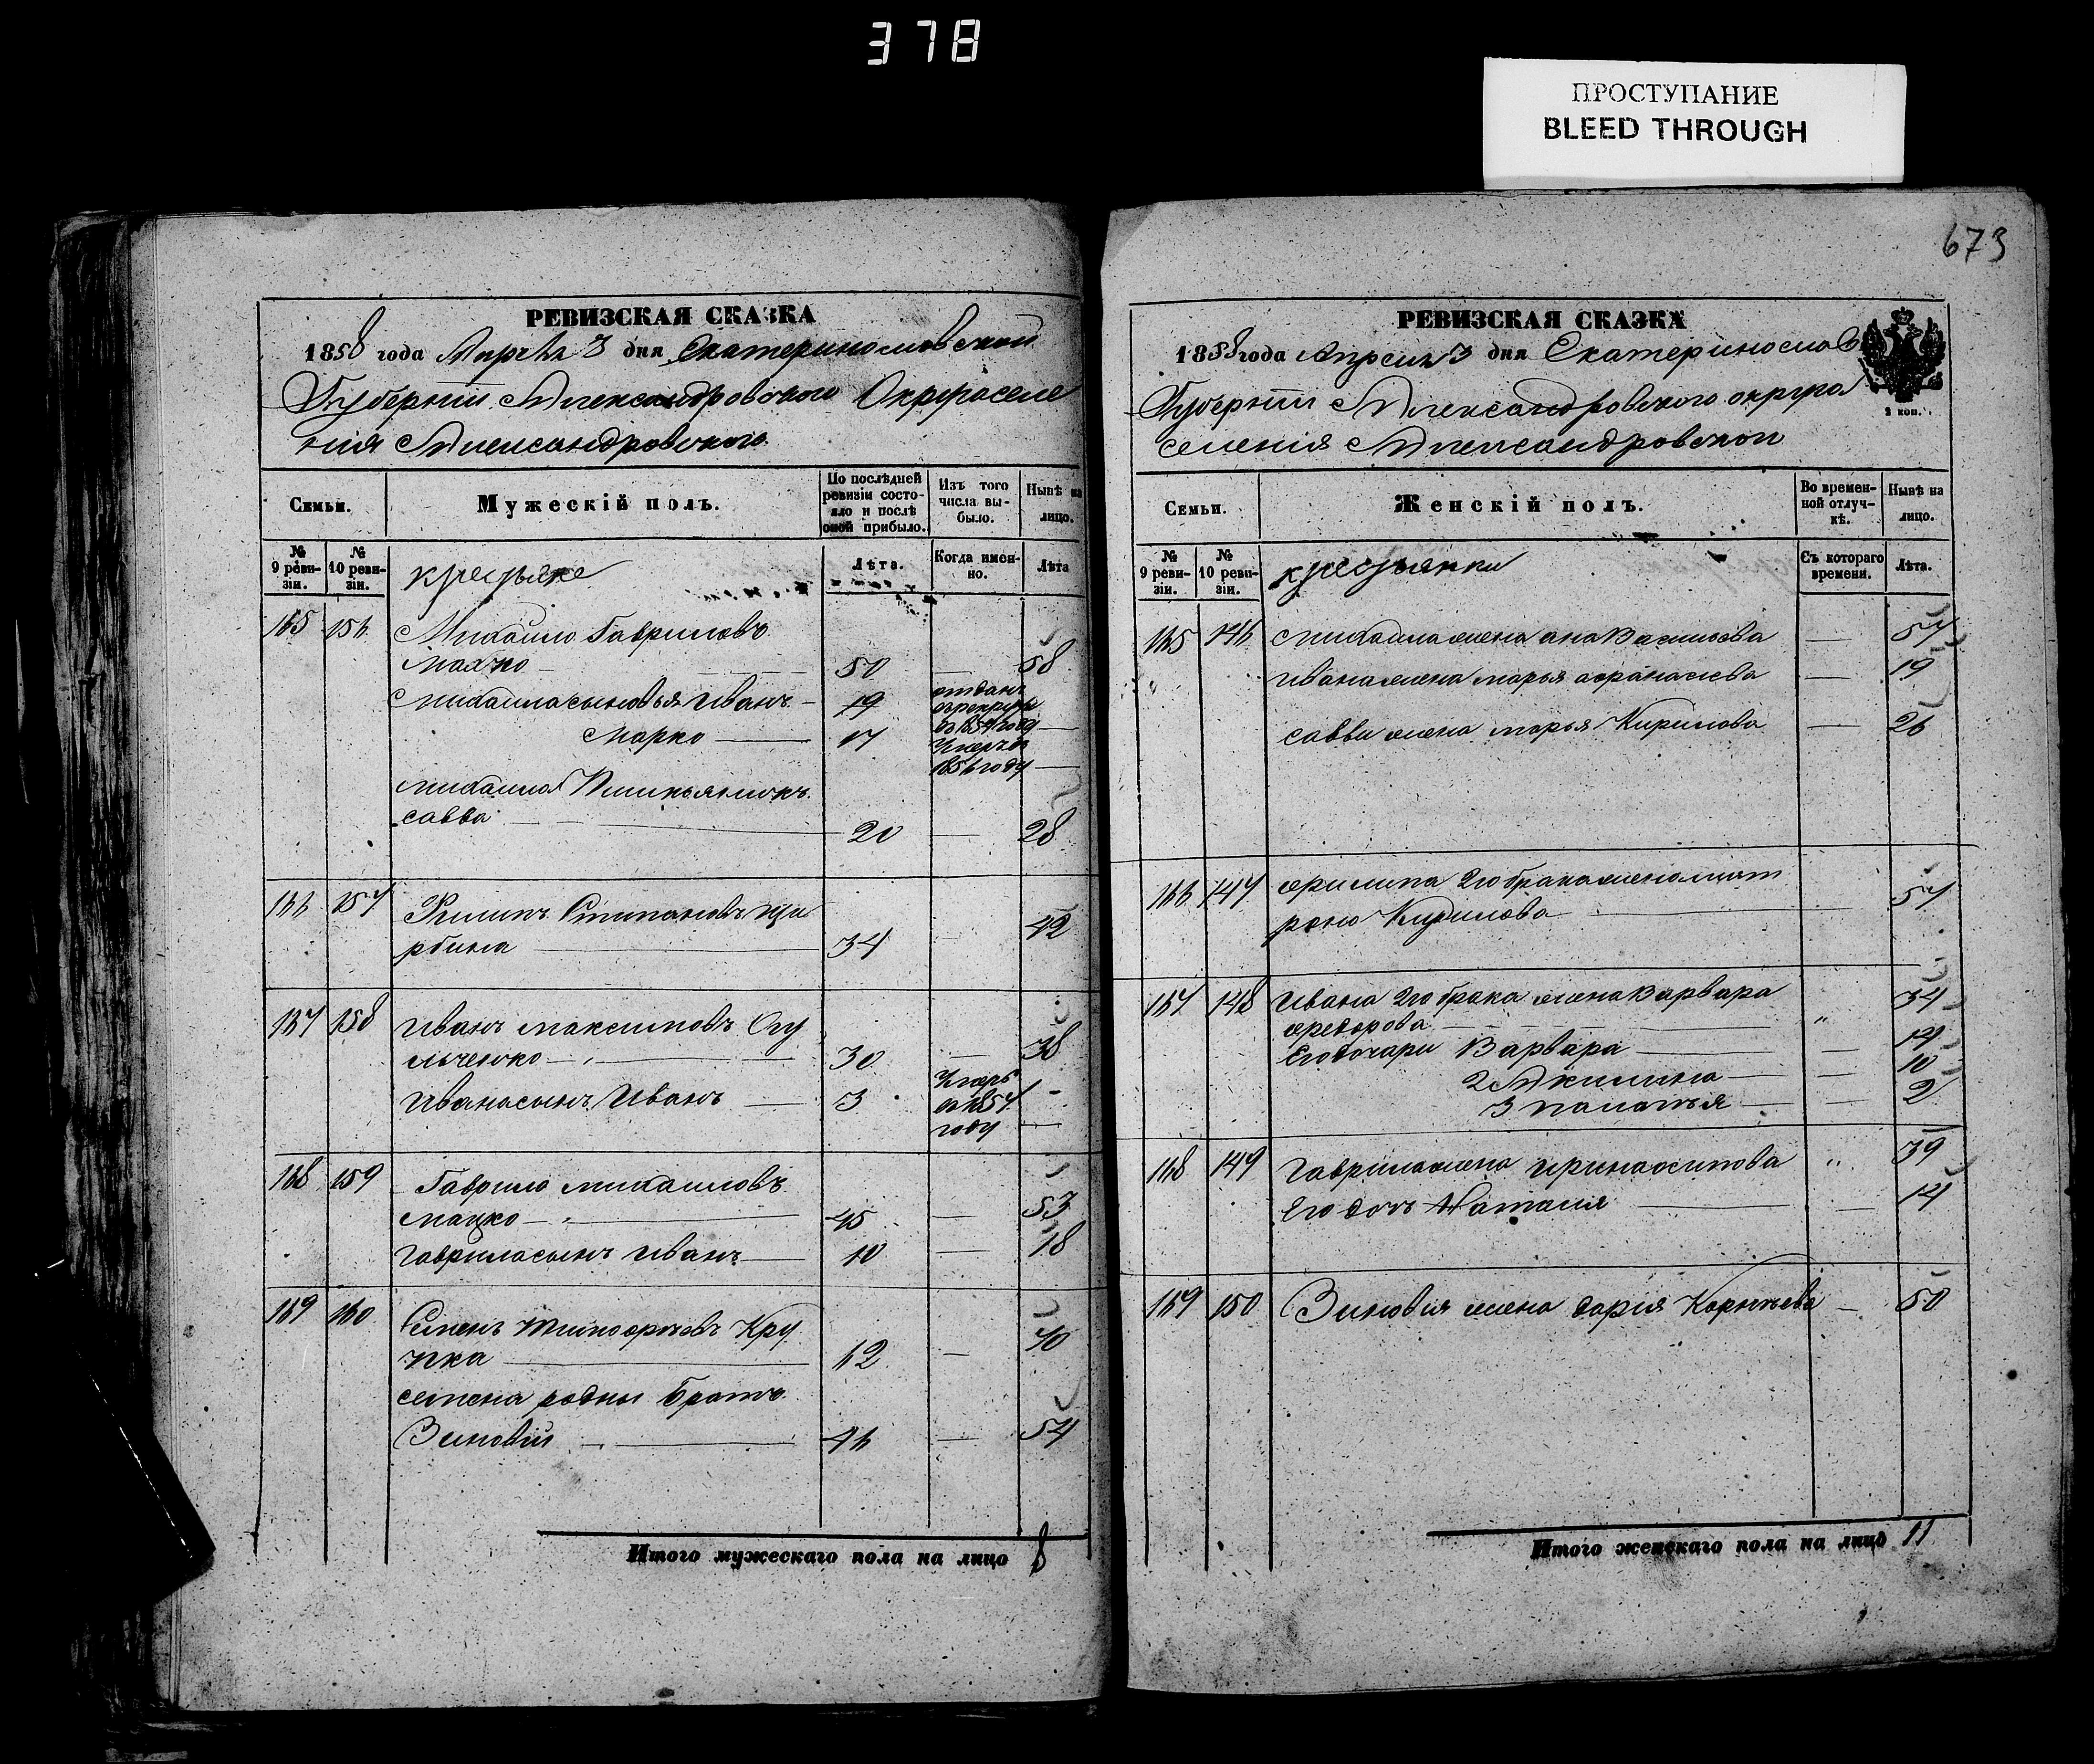 378
ПРОСТУПАНИЕ
BLEED THROUGH
673
РЕВИЗСКАЯ СКАЗКА
1858 года Апреля 3 дня Екатеринославской
Губернии Александровского Округа селе
ния Александровского
Семьи.
Мужескій полъ.
По послѣдней ревизіи состояло и послѣ оной прибыло.
Изъ того числа выбыло.
Нынѣ на лицо.
№ 9 ревизіи.
№ 10 ревизіи.
крестьяне
Лѣта.
Когда именно.
Лѣта
165 156 Михайло Гавриловъ
50 — 58
Михаила сыновья Иванъ — 19 отданъ
в рекруты
в 1854 году —
Марко — 17 Умеръ в
1856 году —
Михаила
савва — 20 — 28
166 157 Филипъ Степановъ Щи
рбина — 34 — 42
167 158 Иванъ Максимовъ Огу
льченко — 30 — 38
Ивана сынъ Иванъ — 3 Умеръ
в 1857
году —
168 159 Гаврило Михаиловъ
Мацко — 45 — 53
Гаврила сынъ Иванъ — 10 — 18
169 160 Семенъ Тимофеевъ Кру
пка — 62 — 70
семена родны братъ
Зиновий — 46 — 54
Итого мужескаго пола на лицо 8
РЕВИЗСКАЯ СКАЗКА
1858 года Апреля 3 дня Екатеринослав
Губернии Александровского округа
селения Александровской
2 коп.
Семьи.
Женскій полъ.
Во временной отлучкѣ.
Нынѣ на лицо.
№ 9 ревизіи.
№ 10 ревизіи.
крестьянки
Съ котораго времени.
Лѣта.
165 146 Михаила жена ана Васильева — 57
Ивана жена марья афанасиева — 19
саввы жена марья Кирилова — 26
166 147 филипа 2го брака жена мит
рона Кирилова — 57
167 148 Ивана 2го брака жена Варвара
федорова — " 34
Его дочери Варвара — 14
2 Акилина — 10
3 палажья — 2
168 149 гаврила жена ирина осипова " 39
Его дочь Наталия — 14
169 150 Зиновия жена дария Карнеева — 50
Итого женскаго пола на лицо 11